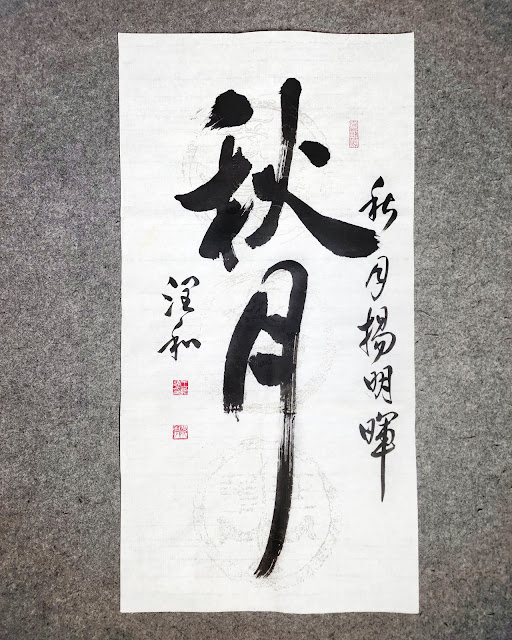 秋月揚明暉
秋月
和